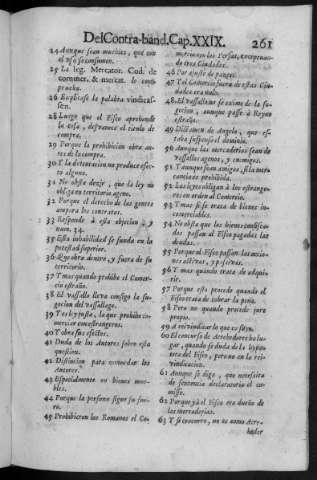 Del Contra-band. Cap. XXIX. 261
24 Aunque sean muebles, que con
el uso se consumen.
25 La leg. Mercator. Cod. de
commer. & mercat. lo com-
prueba.
26 Expliase la palabra vindicas-
sen.
28 Luego que el Fisco aprehende
la cosa, desvanece el titulo de
compra.
29 Porque la prohibicion obra an-
tes de la compra.
30 Y la detentacion no produce efec-
to alguno.
31 No obsta dezir, que la ley no
obliga en territorio ageno.
32 Porque el derecho de las gentes
aprueba los contratos.
33 Responde à esta objecion, y
num. 34.
35 Esta inhabilidad se funda en la
potestad superior.
36 Que obra dentro, y fuera de su
territorio.
37 Y mas quando prohibe el Comer-
cio estraño.
38 El vassallo lleva consigo la su-
gecion del vassallage.
39 Y es ley justa, la que prohibe co-
merciar con estrangeros.
40 Y obra sus efectos.
41 Duda de los Autores sobre esta
question.
42 Distincion para concordar los
Autores.
43 Especialmente en bienes mue-
bles.
44 Porque la persona sigue su fue-
ro.
45 Prohibieron los Romanos el Co-
mercio con los Persas, excep-
to en tres Ciudades.
46 Por ajuste de pazes.
47 Y el Comercio fuera de estas Ciu-
dades era nulo.
48 El vassallo no se exime de la su-
gecion, aunque passe à Reyno
estraño.
49 Dictamen de Angelo, que es-
taba suspenso el dominio.
50 Aunque las mercaderias sean de
vassallos agenos, y enemigos.
51 Y aunque sean amigos, si la mer-
cancia es prohibida.
52 Las leyes obligan à los estrange-
ros en orden al Comercio.
53 Y mas si se trata de bienes in-
comerciables.
54 No obsta que los bienes confisca-
dos passan al Fisco pagadas las
deudas.
55 Porque al Fisco passan las accio-
nes activas, y passivas.
56 Y mas quando trata de adqui-
rir.
57 Porque esto procede quando el
Fisco trata de cobrar la pena.
58 Pero no quando procede jure
proprio.
59 A reivindicar lo que es suyo.
60 El concurso de Acrehedores ha lu-
gar, quando se duda de la hypote-
ca del Fisco, pero no en la rei-
vindicacion.
61 Aunque se diga, que necessita
de sentencia declaratoria el co-
misso.
62 Porque yà el Fisco era dueño de
las mercaderias.
63 Y si concurre, no es como Acre-
hedor